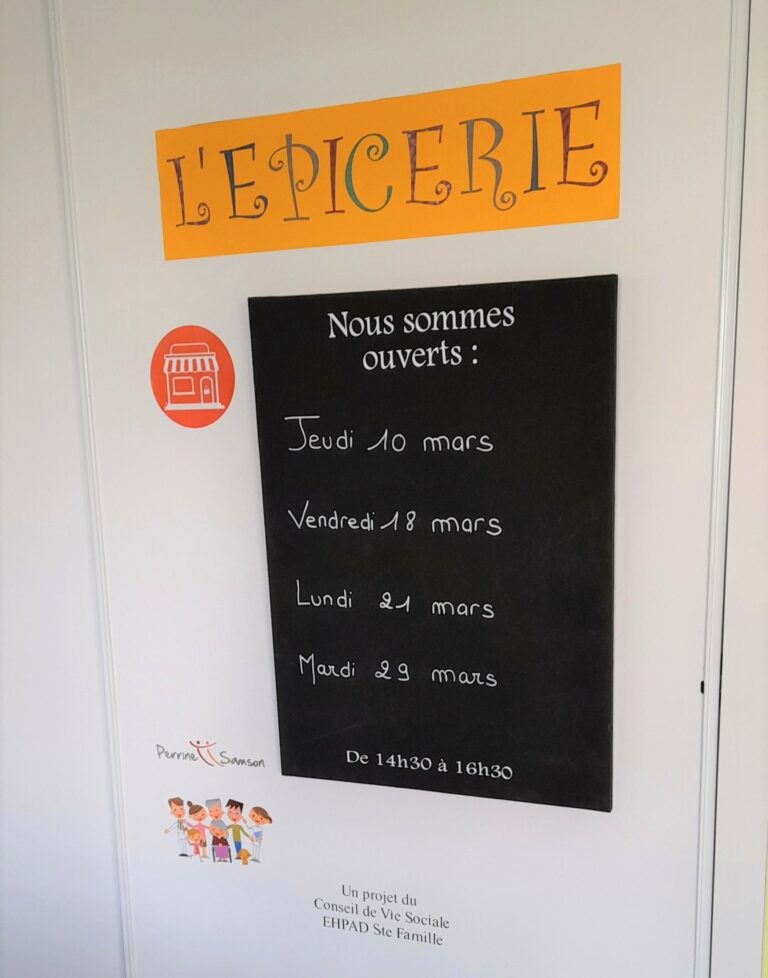 L'EPICERIE
Nous sommes
ouverts :
Jeudi 10 mars
Vendredi 18 mars
Lundi 21 mars
Mardi 29 mars
De 14h30 à 16h30
Perrine Samson
Un projet du
Conseil de Vie Sociale
EHPAD Ste Famille